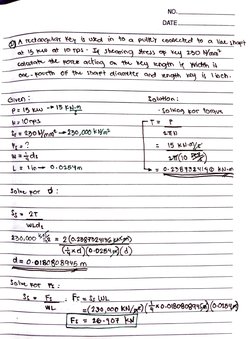 NO.
DATE
A rectangular key is used in to a pulley connected to a line shaft
at 15 kw at 10 rps. If shearing stress of key 230 N/mm²
calculate the force acting on the key length if width is
one-fourth of the shaft diameter and length key is 1 inch.
Given:
P = 15 kw → 15 kN.m/s
N = 10 rps
Ss = 230 N/mm² → 230,000 kN/m²
Fs = ?
W = 1/4 d
L = 1 in → 0.0254 m
Solution:
- Solving for torque
T = P / 2πN
= 15 kN.m/s / 2π(10 rev/s)
= 0.2387324146 kN.m
Solve for d:
Ss = 2T / WLds
230,000 kN/m² = 2(0.2387324146 kN.m) / (1/4 × d)(0.0254m)(d)
d = 0.0180808945 m
Solve for Fs:
Ss = Fs / WL ; Fs = Ss WL
= (230,000 kN/m²)(1/4 × 0.0180808945m)(0.0254m)
Fs = 26.407 kN